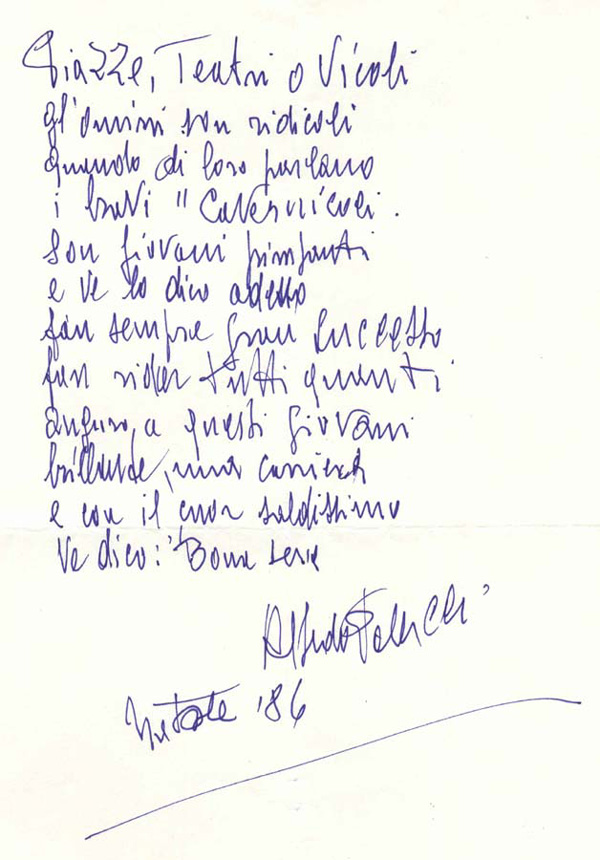 Piazze, Teatri o Vicoli
gl'omini son ridicoli
quando di loro parlano
i bravi "Cavernicoli.
son giovani pimpanti
e ve lo dico adesso
fan sempre gran successo
fan rider tutti quanti
auguro, a questi giovani
brillante, una carriera
e con il cuor saldissimo
Ve dico: "Bona sera
Alfredo
Natale '86